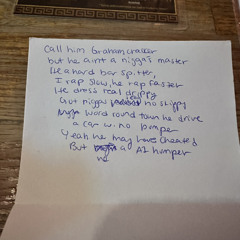 Call him Graham cracker
but he aint a nigga's master
He a hard bar spitter,
I rap slow, he rap faster
He dress real drippy
Got nigga no skippy
word round town he drive
a car w. no bumper
Yeah he may have cheated
But he a A1 humper